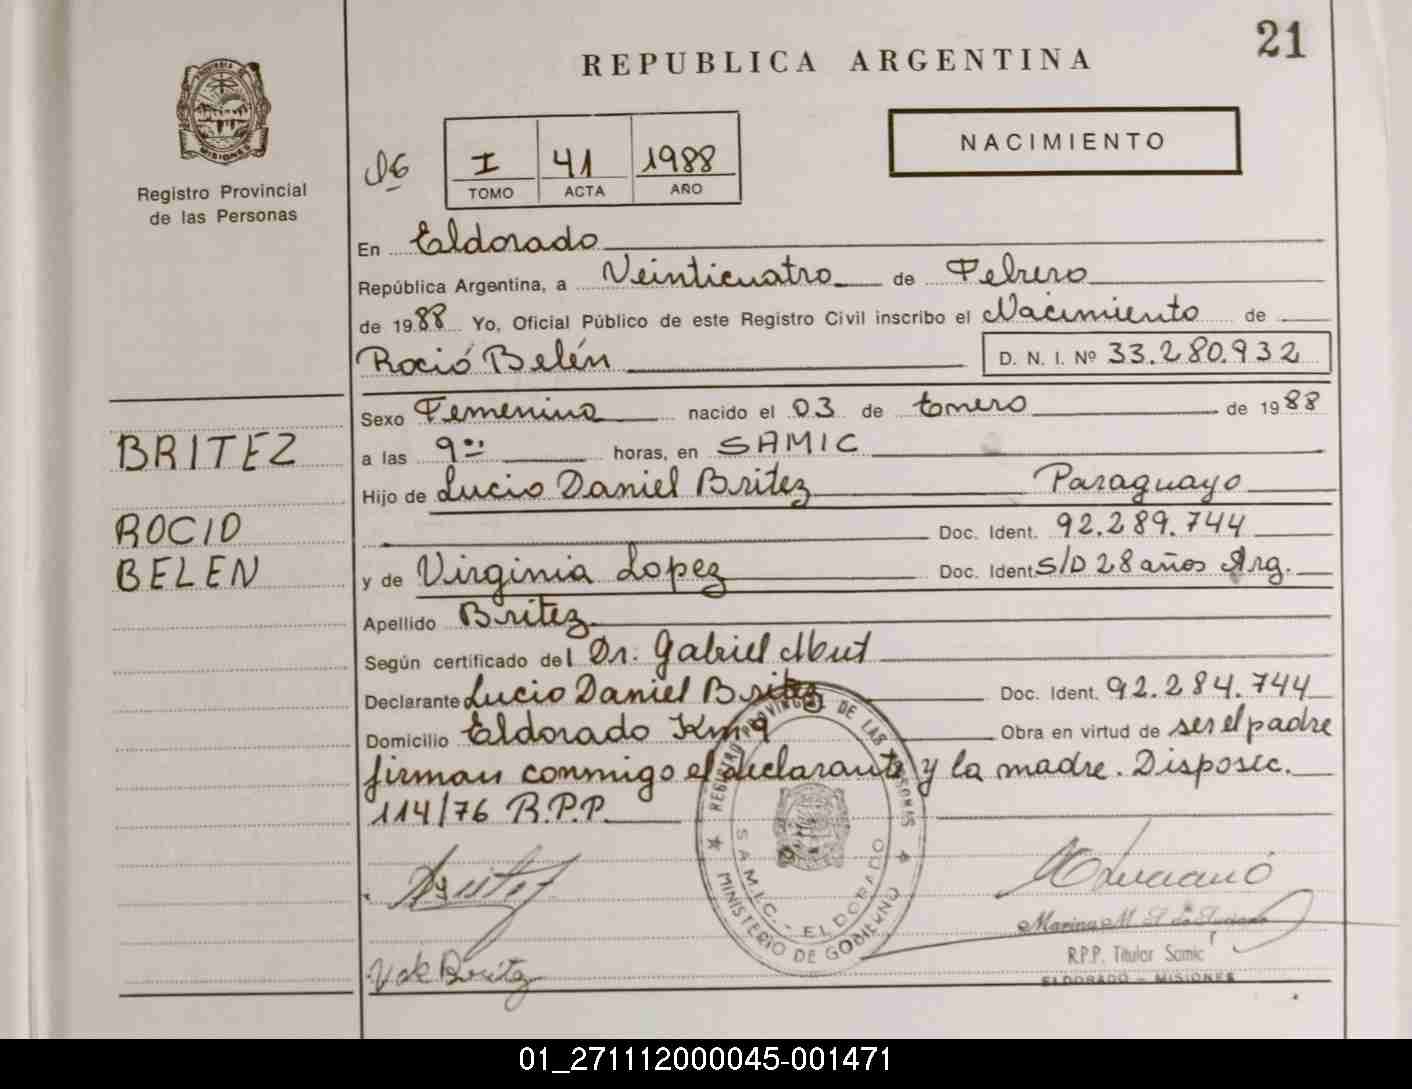 21
REPUBLICA ARGENTINA
NACIMIENTO
MISIONES
Registro Provincial
de las Personas
I 41 1988
TOMO ACTA AÑO
En Eldorado
República Argentina, a Veinticuatro de Febrero
de 1988 Yo, Oficial Público de este Registro Civil inscribo el Nacimiento de
Roció Belén D. N. I. Nº 33.280.932
Sexo Femenino nacido el 03 de de 1988
BRITEZ
a las 9 horas, en SAMIC
Hijo de Lucio Daniel Britez Paraguayo
ROCIO
Doc. Ident. 92.289.744
BELEN
y de Virginia Lopez Doc. Ident. S/D 28 años Arg.
Apellido Britez
Según certificado del Dr. Gabriel
Declarante Lucio Daniel Britez Doc. Ident. 92.284.744
Domicilio Eldorado Km 9 Obra en virtud de ser el padre
firman conmigo el declarante y la madre. Disposic.
114/76 R.P.P.
REGISTRO PROVINCIAL DE LAS PERSONAS
S.A.M.I.C. - ELDORADO
MINISTERIO DE GOBIERNO
Britez
V de Britez
Marina M.
R.P.P. Titular Samic
ELDORADO - MISIONES
01_271112000045-001471